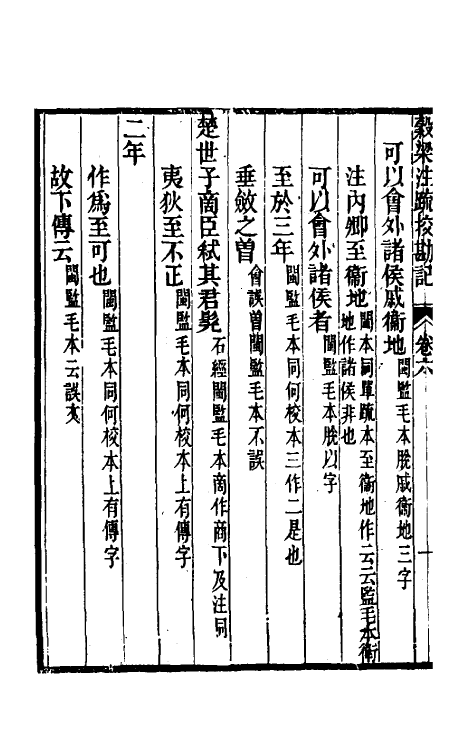 穀梁注疏挍勘記 卷六 一
可以會外諸侯戚衞地 閩監毛本脫戚衞地三字
注内卿至衞地 閩本同單疏本至衞地作云云監毛本衞地作諸侯非也
可以會外諸侯者 閩監毛本脫以字
至於三年 閩監毛本同何校本三作二是也
垂斂之曽 會誤曽閩監毛本不誤
楚世子啇臣弑其君髡 石經閩監毛本啇作商下及注同
夷狄至不正 閩監毛本同何校本上有傳字
二年
作爲至可也 閩監毛本同何校本上有傳字
故下傳云 閩監毛本云誤文